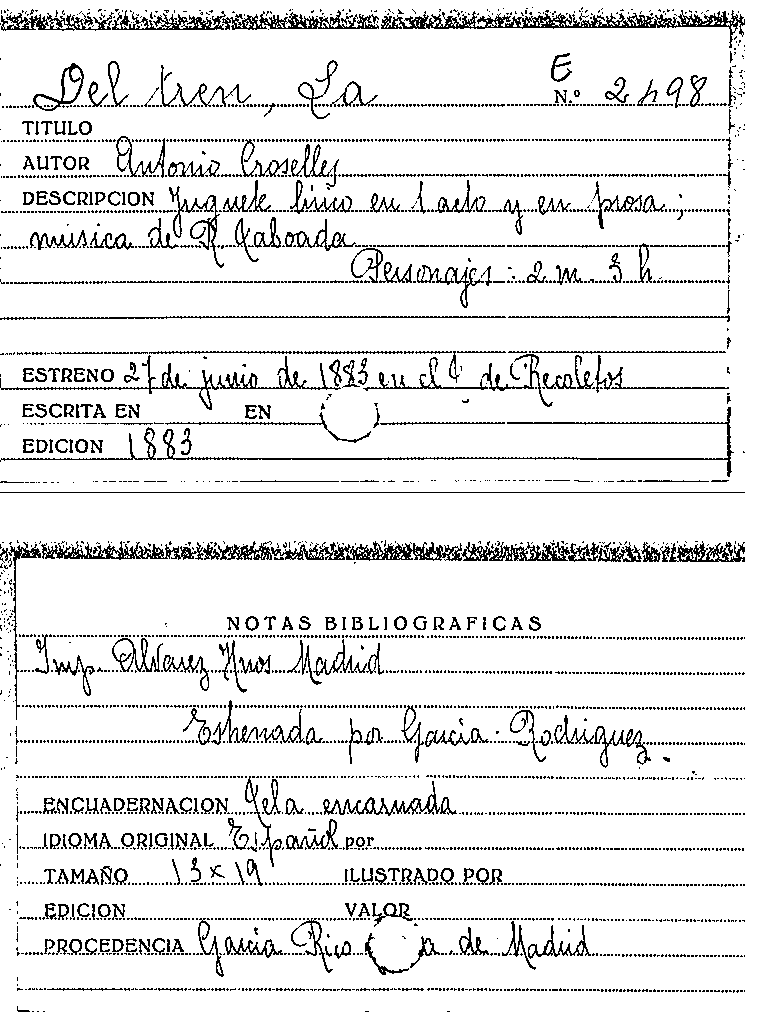 Del tren, La
E
N.º 2498
TITULO
AUTOR Antonio Croselles
DESCRIPCION Juguete lirico en 1 acto y en prosa;
música de R Taboada
Personajes: 2 m. 3 h.
ESTRENO 27 de junio de 1883 en el T de Recoletos
ESCRITA EN EN
EDICION 1883
NOTAS BIBLIOGRAFICAS
Imp. Alvarez Hnos Madrid
Estrenada por Garcia - Rodriguez.
ENCUADERNACION Tela encarnada
IDIOMA ORIGINAL Español por
TAMAÑO 13 x 19 ILUSTRADO POR
EDICION VALOR
PROCEDENCIA Garcia Rico de Madrid